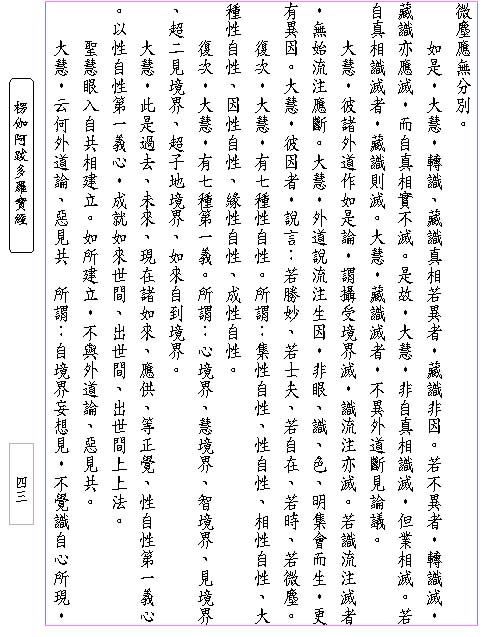 微塵應無分別。
如是，大慧，轉識、藏識真相若異者，藏識非因。若不異者，轉識滅，
藏識亦應滅，而自真相實不滅。是故，大慧，非自真相識滅，但業相滅。若
自真相識滅者，藏識則滅。大慧，藏識滅者，不異外道斷見論議。
大慧，彼諸外道作如是論，謂攝受境界滅，識流注亦滅。若識流注滅者
，無始流注應斷。大慧，外道說流注生因，非眼、識、色、明集會而生，更
有異因。大慧，彼因者，說言：若勝妙、若士夫、若自在、若時、若微塵。
復次，大慧，有七種性自性。所謂：集性自性、性自性、相性自性、大
種性自性、因性自性、緣性自性、成性自性。
復次，大慧，有七種第一義。所謂：心境界、慧境界、智境界、見境界
、超二見境界、超子地境界、如來自到境界。
大慧，此是過去、未來、現在諸如來、應供、等正覺、性自性第一義心
。以性自性第一義心，成就如來世間、出世間、出世間上上法。
聖慧眼入自共相建立。如所建立，不與外道論、惡見共。
大慧，云何外道論、惡見共　所謂：自境界妄想見，不覺識自心所現，
楞伽阿跋多羅寶經
四三